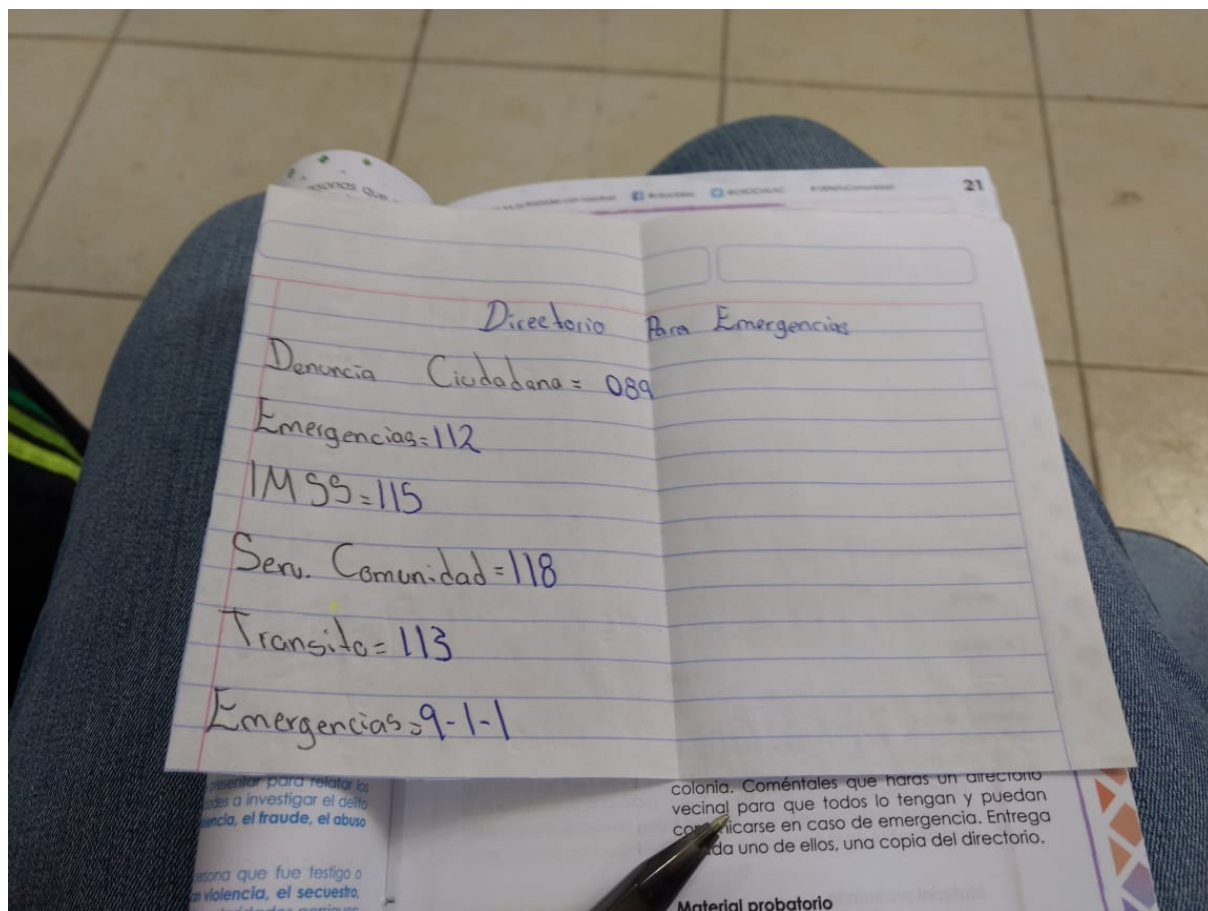 21
Directorio Para Emergencias
Denuncia Ciudadana = 089
Emergencias = 112
IMSS = 115
Serv. Comunidad = 118
Transito = 113
Emergencias = 9-1-1
para relatar los
a investigar el delito
el fraude, el abuso
que fue testigo o
violencia, el secuestro,
colonia. Coméntales que harás un directorio
vecinal para que todos lo tengan y puedan
en caso de emergencia. Entrega
uno de ellos, una copia del directorio.
Material probatorio